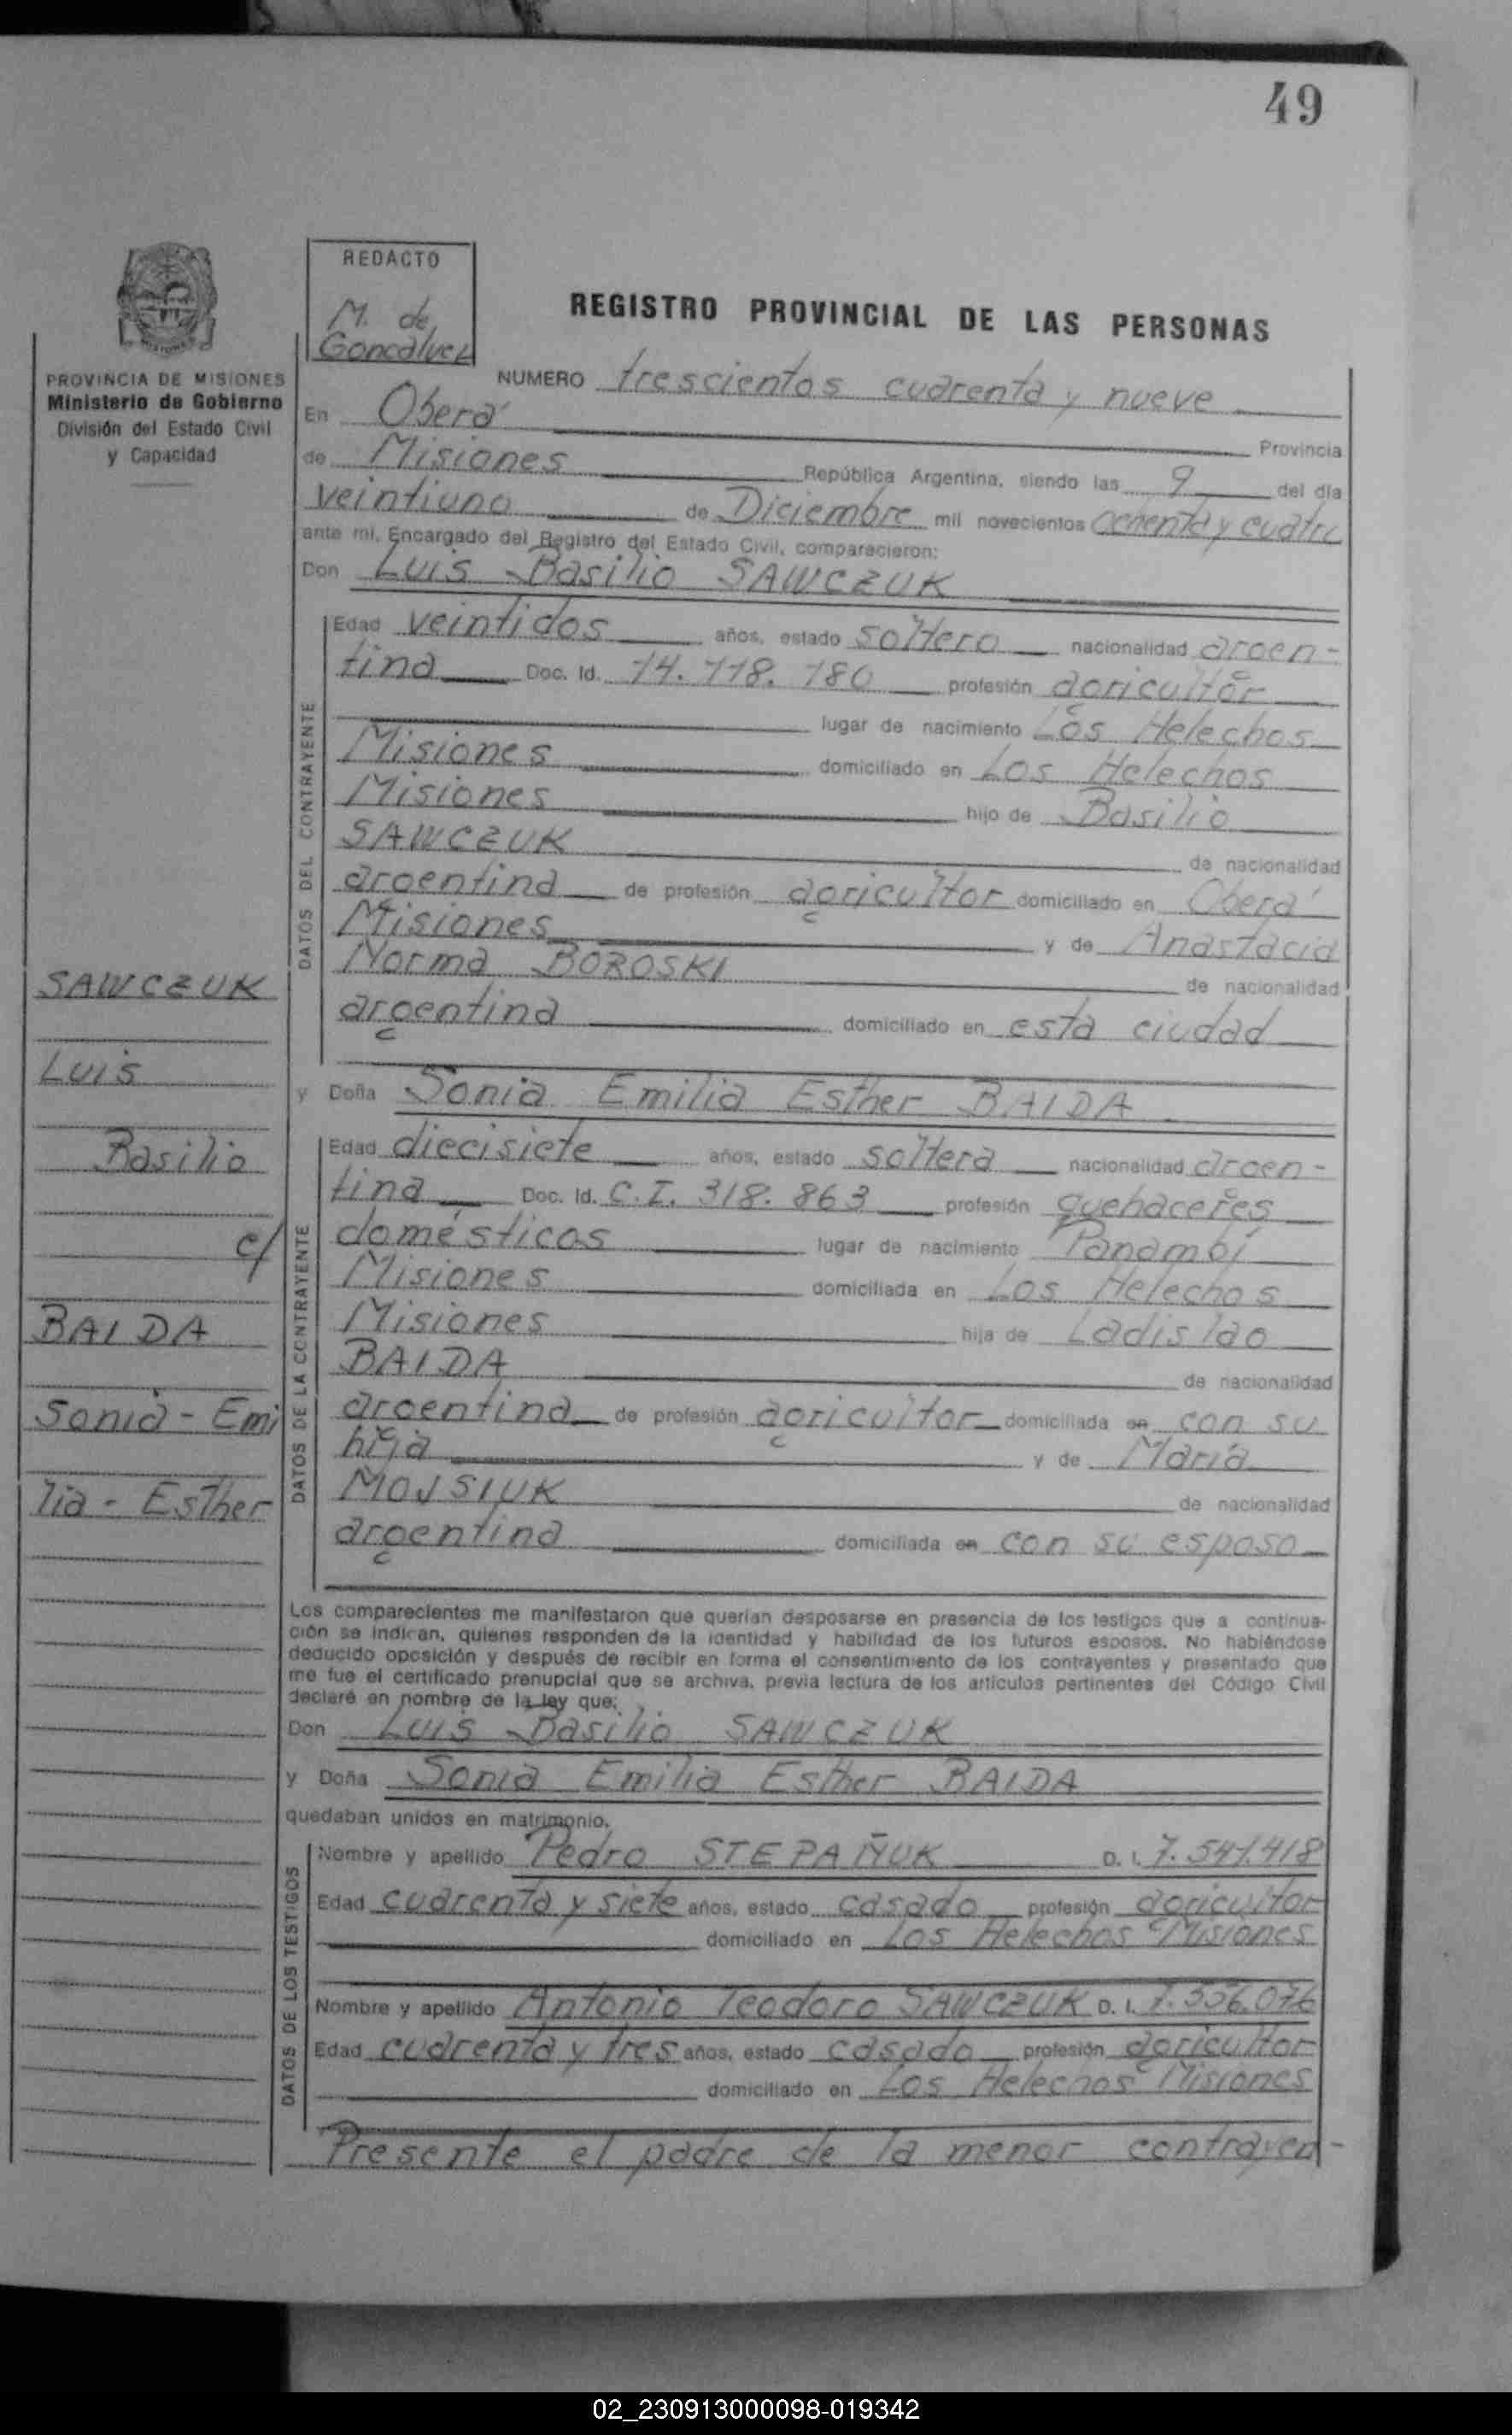 49
REDACTO
M. de
Goncalvez
REGISTRO PROVINCIAL DE LAS PERSONAS
PROVINCIA DE MISIONES
Ministerio de Gobierno
División del Estado Civil
y Capacidad
NUMERO trescientos cuarenta y nueve
En Oberá Provincia
de Misiones República Argentina, siendo las 9 del día
veintiuno de Diciembre mil novecientos ochenta y cuatro
ante mí, Encargado del Registro del Estado Civil, comparecieron:
Don Luis Basilio SAWCZUK
DATOS DEL CONTRAYENTE
Edad veintidos años, estado soltero nacionalidad argen-
tina Doc. Id. 14.118.180 profesión agricultor
lugar de nacimiento Los Helechos
Misiones domiciliado en Los Helechos
Misiones hijo de Basilio
SAWCZUK de nacionalidad
argentina de profesión agricultor domiciliado en Oberá
Misiones y de Anastacia
Norma BOROSKI de nacionalidad
argentina domiciliado en esta ciudad
y Doña Sonia Emilia Esther BAIDA
DATOS DE LA CONTRAYENTE
Edad diecisiete años, estado soltera nacionalidad argen-
tina Doc. Id. C.I. 318.863 profesión quehaceres
domésticos lugar de nacimiento Panambí
Misiones domiciliada en Los Helechos
Misiones hija de Ladislao
BAIDA de nacionalidad
argentina de profesión agricultor domiciliada en con su
hija y de María
MOJSIUK de nacionalidad
argentina domiciliada en con su esposo
SAWCZUK
Luis
Basilio
c/
BAIDA
Sonia - Emi
lia - Esther
Los comparecientes me manifestaron que querían desposarse en presencia de los testigos que a continua-
ción se indican, quienes responden de la identidad y habilidad de los futuros esposos. No habiéndose
deducido oposición y después de recibir en forma el consentimiento de los contrayentes y presentado que
me fue el certificado prenupcial que se archiva, previa lectura de los artículos pertinentes del Código Civil
declaré en nombre de la ley que:
Don Luis Basilio SAWCZUK
y Doña Sonia Emilia Esther BAIDA
quedaban unidos en matrimonio.
DATOS DE LOS TESTIGOS
Nombre y apellido Pedro STEPAÑUK D. I. 7.541.418
Edad cuarenta y siete años, estado casado profesión agricultor
domiciliado en Los Helechos Misiones
Nombre y apellido Antonio Teodoro SAWCZUK D. I. 7.556.076
Edad cuarenta y tres años, estado casado profesión agricultor
domiciliado en Los Helechos Misiones
Presente el padre de la menor contrayen-
02_230913000098-019342